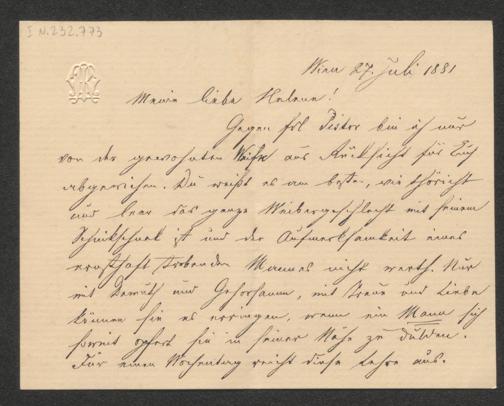 I N.232.773
Wien 27. Juli 1881
Meine liebe Helene!
Gegen Frl Pistor bin ich nur
von der gewohnten Weise aus Rücksicht für Euch
abgewichen. Du weißt es am besten, wie thöricht
und leer das ganze Weibergeschlecht mit seinem
Schnickschnack ist und der Aufmerksamkeit eines
ernsthaft strebenden Mannes nicht werth. Nur
mit Demuth und Gehorsam, mit Treue und Liebe
können sie es erringen, wenn ein Mann sich
soweit opfert sie in seiner Nähe zu dulden.
Für einen Wochentag reicht diese Lehre aus.